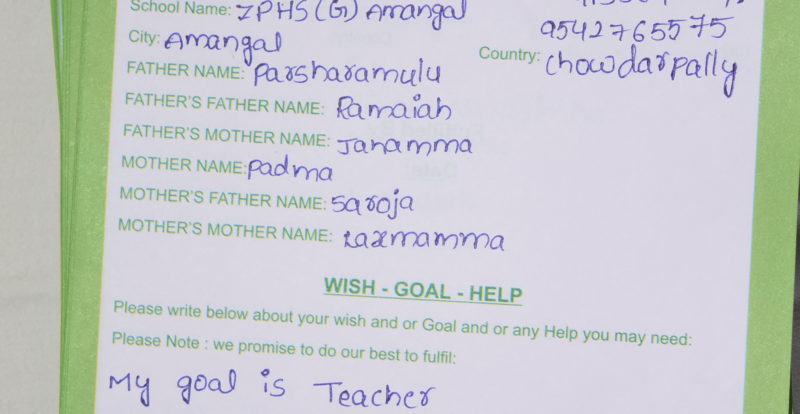 School Name: ZPHS (G) Amangal
9542765575
City: Amangal
Country: chowdarpally
FATHER NAME: Parsharamulu
FATHER'S FATHER NAME: Ramaiah
FATHER'S MOTHER NAME: Janamma
MOTHER NAME: Padma
MOTHER'S FATHER NAME: Saroja
MOTHER'S MOTHER NAME: Laxmamma
WISH - GOAL - HELP
Please write below about your wish and or Goal and or any Help you may need:
Please Note : we promise to do our best to fulfil:
My goal is Teacher